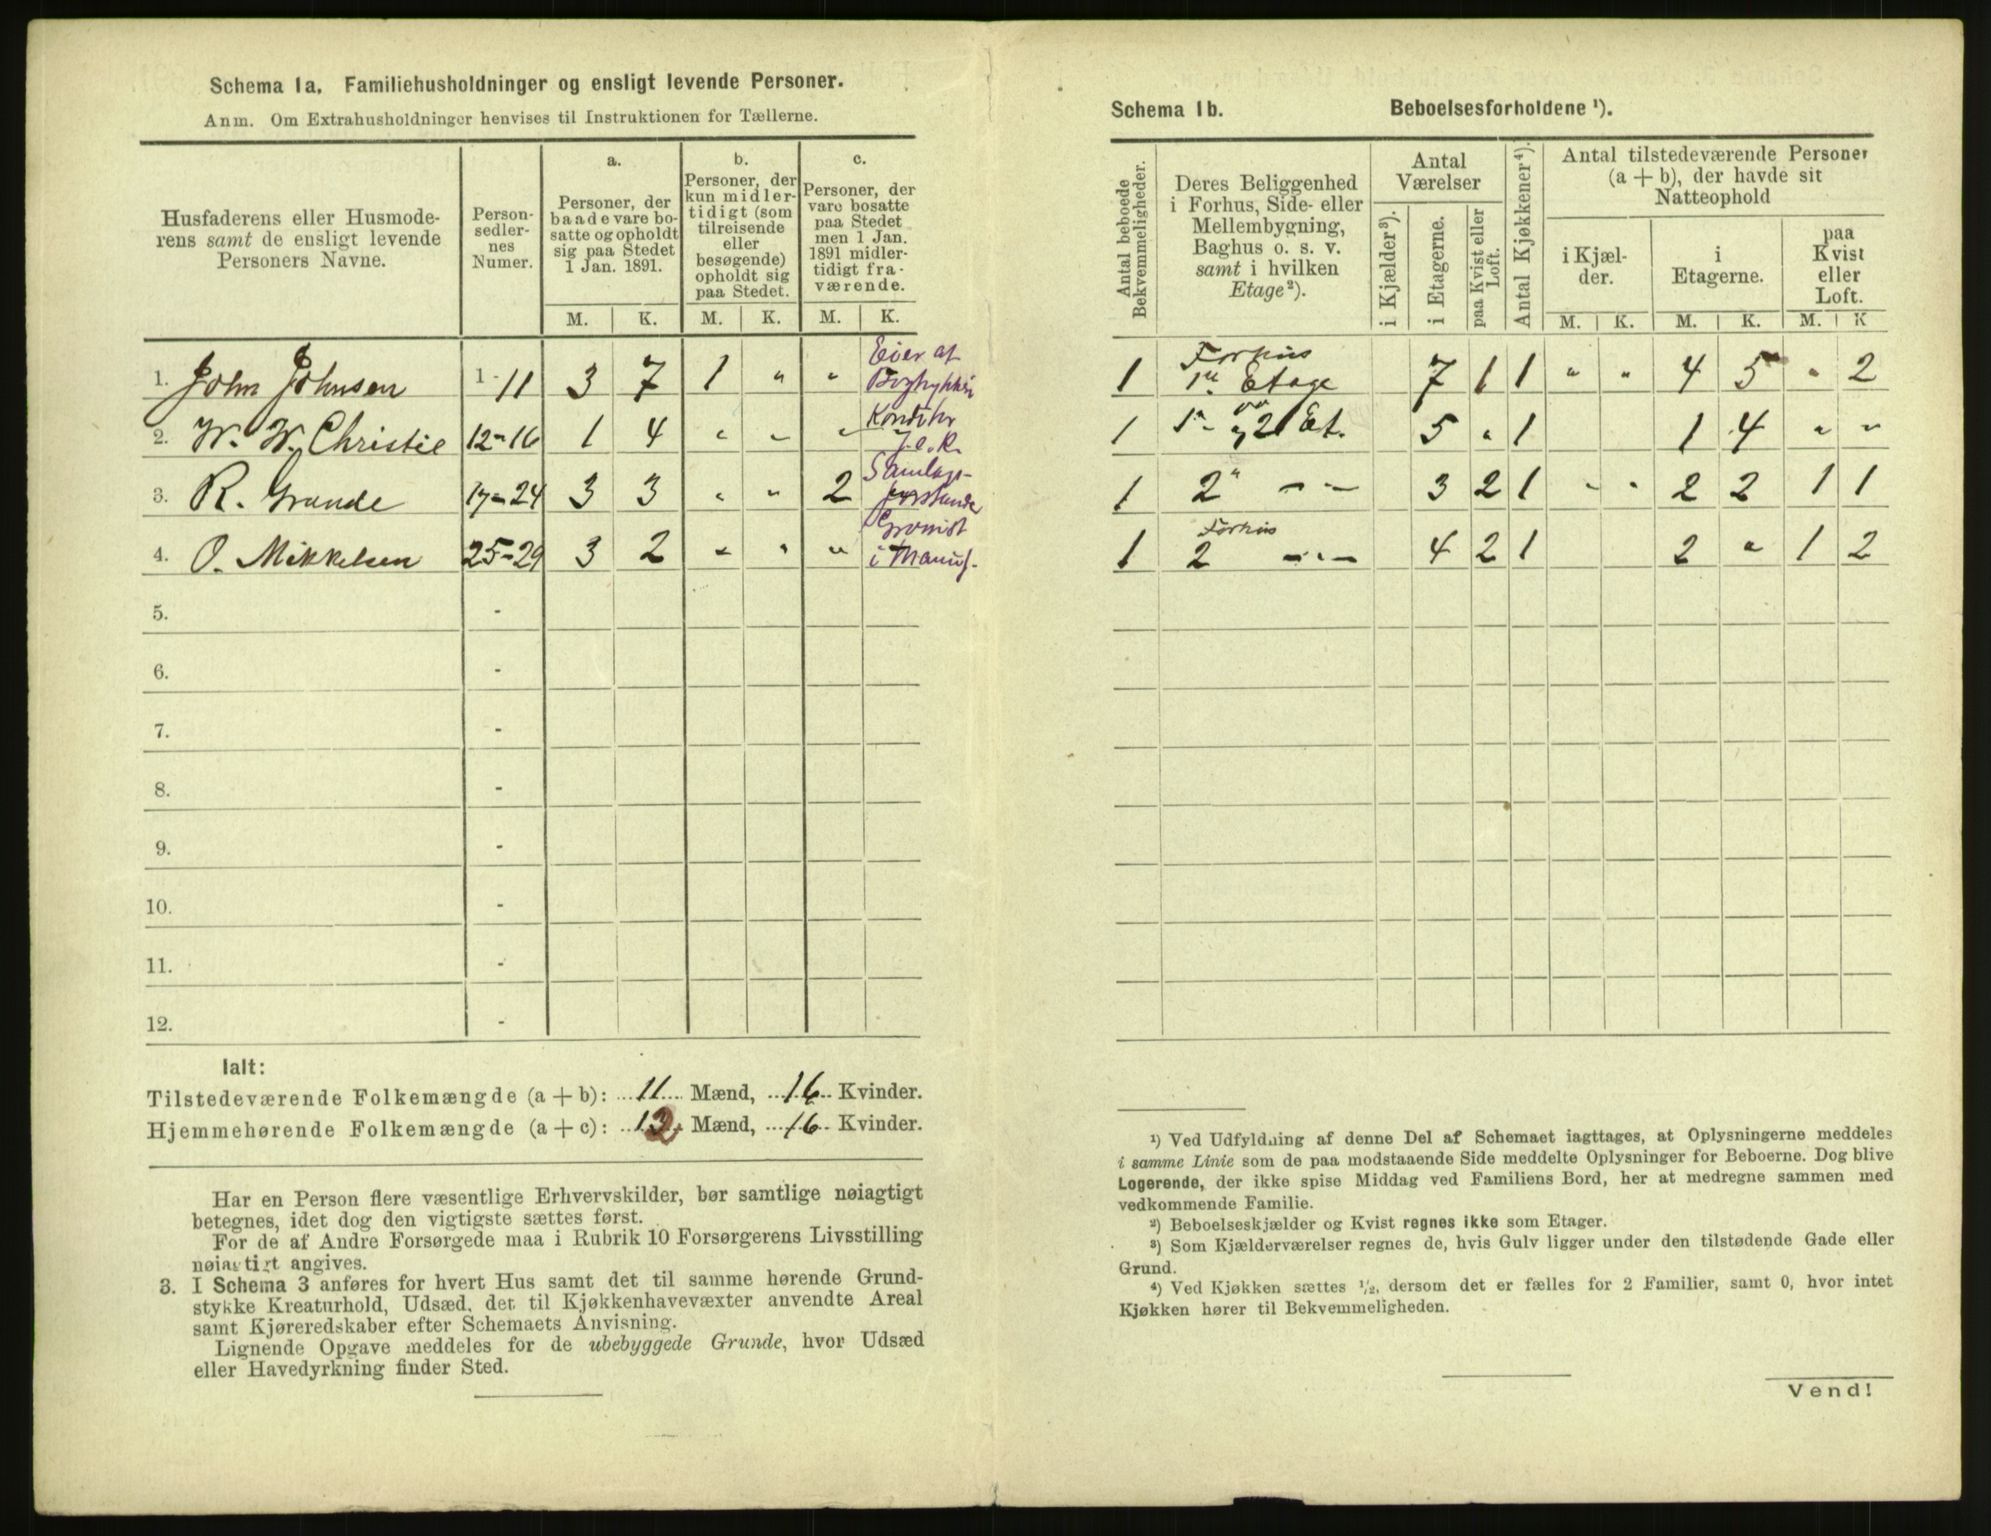 Schema 1a. Familiehusholdninger og ensligt levende Personer.
Anm. Om Extrahusholdninger henvises til Instruktionen for Tællerne.
Husfaderens eller Husmode-
rens samt de ensligt levende
Personers Navne.
Person-
sedler-
nes
Numer.
a.
Personer, der
baade vare bo-
satte og opholdt
sig paa Stedet
1 Jan. 1891.
b.
Personer, der
kun midler-
tidigt (som
tilreisende
eller
besøgende)
opholdt sig
paa Stedet.
c.
Personer, der
vare bosatte
paa Stedet
men 1 Jan.
1891 midler-
tidigt fra-
værende.
M. K. M. K. M. K.
1. John Johnsen 1-11 3 7 1 " " Eier af
2. W. W. Christie 12-16 1 4 " " "
3. R. Grande 17-24 3 3 " " 2 Samlags-
4. O. Mikkelsen 25-29 3 2 " " " i Manuf.
5. -
6. -
7. -
8. -
9. -
10. -
11. -
12. -
Ialt:
Tilstedeværende Folkemængde (a + b): 11 Mænd, 16 Kvinder.
Hjemmehørende Folkemængde (a + c): 12 Mænd, 16 Kvinder.
Har en Person flere væsentlige Erhvervskilder, bør samtlige nøiagtigt
betegnes, idet dog den vigtigste sættes først.
For de af Andre Forsørgede maa i Rubrik 10 Forsørgerens Livsstilling
nøiagtigt angives.
3. I Schema 3 anføres for hvert Hus samt det til samme hørende Grund-
stykke Kreaturhold, Udsæd, det til Kjøkkenhavevæxter anvendte Areal
samt Kjøreredskaber efter Schemaets Anvisning.
Lignende Opgave meddeles for de ubebyggede Grunde, hvor Udsæd
eller Havedyrkning finder Sted.
Schema 1b. Beboelsesforholdene ¹).
Antal beboede
Bekvemmeligheder.
Deres Beliggenhed
i Forhus, Side- eller
Mellembygning,
Baghus o. s. v.
samt i hvilken
Etage²).
Antal
Værelser
i Kjælder³).
i Etagerne.
paa Kvist eller
Loft.
Antal Kjøkkener⁴).
Antal tilstedeværende Personer
(a + b), der havde sit
Natteophold
i Kjæl-
der.
i
Etagerne.
paa
Kvist
eller
Loft.
M. K. M. K. M. K
Forhus
1 1ste Etage 7 1 1 " " 4 5 " 2
1 2 Et. 5 " 1 1 4 " "
1 2" - - 3 2 1 " " 2 2 1 1
Forhus
1 2 - - - 4 2 1 2 " 1 2
¹) Ved Udfyldning af denne Del af Schemaet iagttages, at Oplysningerne meddeles
i samme Linie som de paa modstaaende Side meddelte Oplysninger for Beboerne. Dog blive
Logerende, der ikke spise Middag ved Familiens Bord, her at medregne sammen med
vedkommende Familie.
²) Beboelseskjælder og Kvist regnes ikke som Etager.
³) Som Kjælderværelser regnes de, hvis Gulv ligger under den tilstødende Gade eller
Grund.
⁴) Ved Kjøkken sættes ½, dersom det er fælles for 2 Familier, samt 0, hvor intet
Kjøkken hører til Bekvemmeligheden.
Vend!